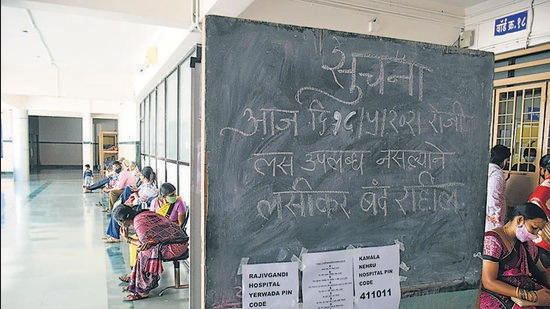 वॉर्ड क्र.१८
सुचना
आज दि १८/५/२०२१ रोजी
लस उपलब्ध नसल्याने
लसीकर बंद राहील
RAJIVGANDI
HOSPITAL
YERWADA PIN
CODE
KAMALA
NEHRU
HOSPITAL PIN
CODE
411011